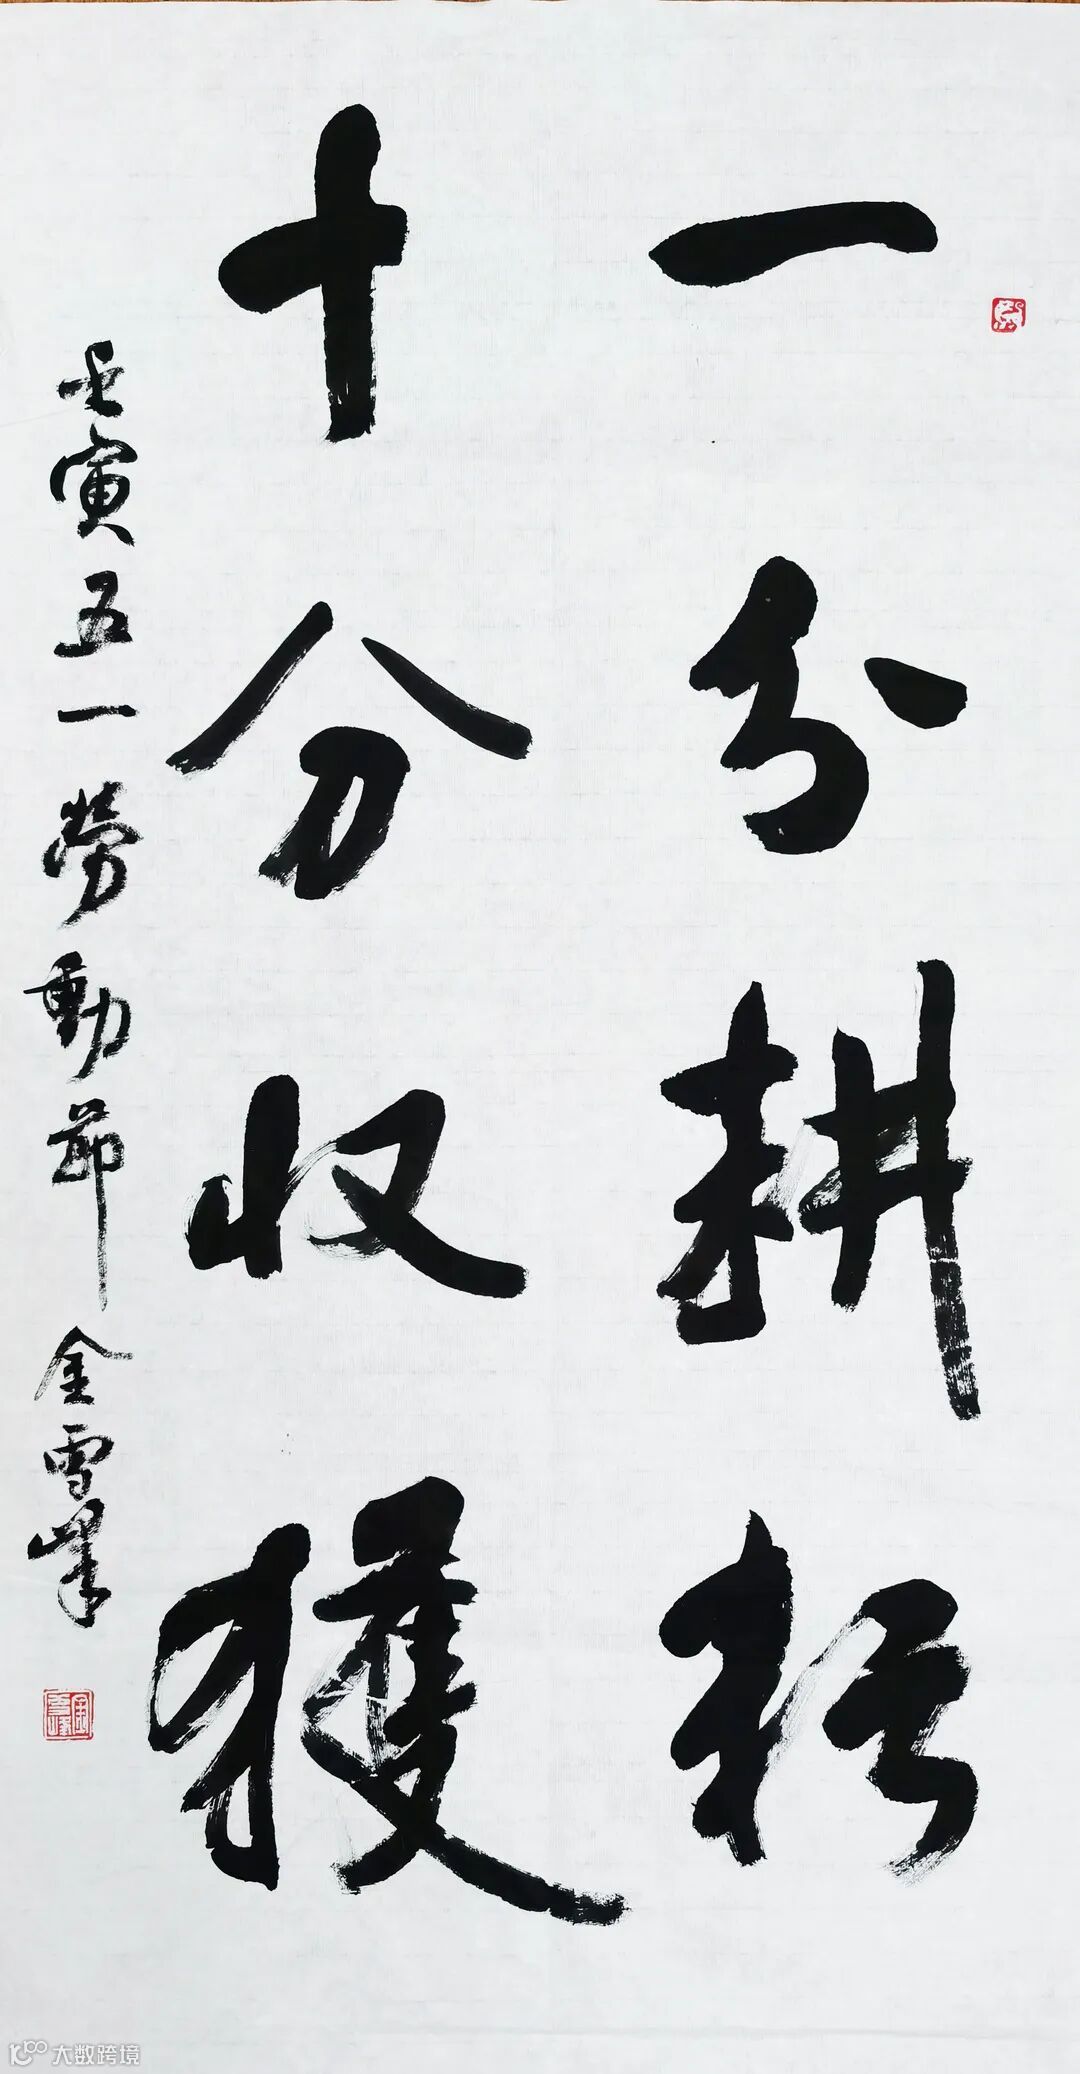 一分耕耘
十分收獲
壬寅五一勞動節金雪峰
大数跨境